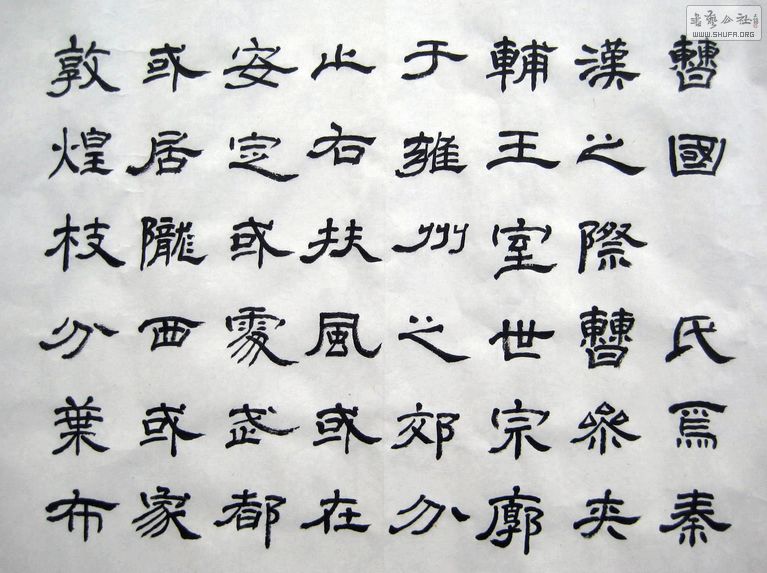 曹國 氏焉秦
漢之際曹參夾
輔王室世宗廓
于雍州之郊分
止右扶風或在
安定或處武都
或居隴西或家
敦煌枝分葉布
書藝公社
WWW.SHUFA.ORG